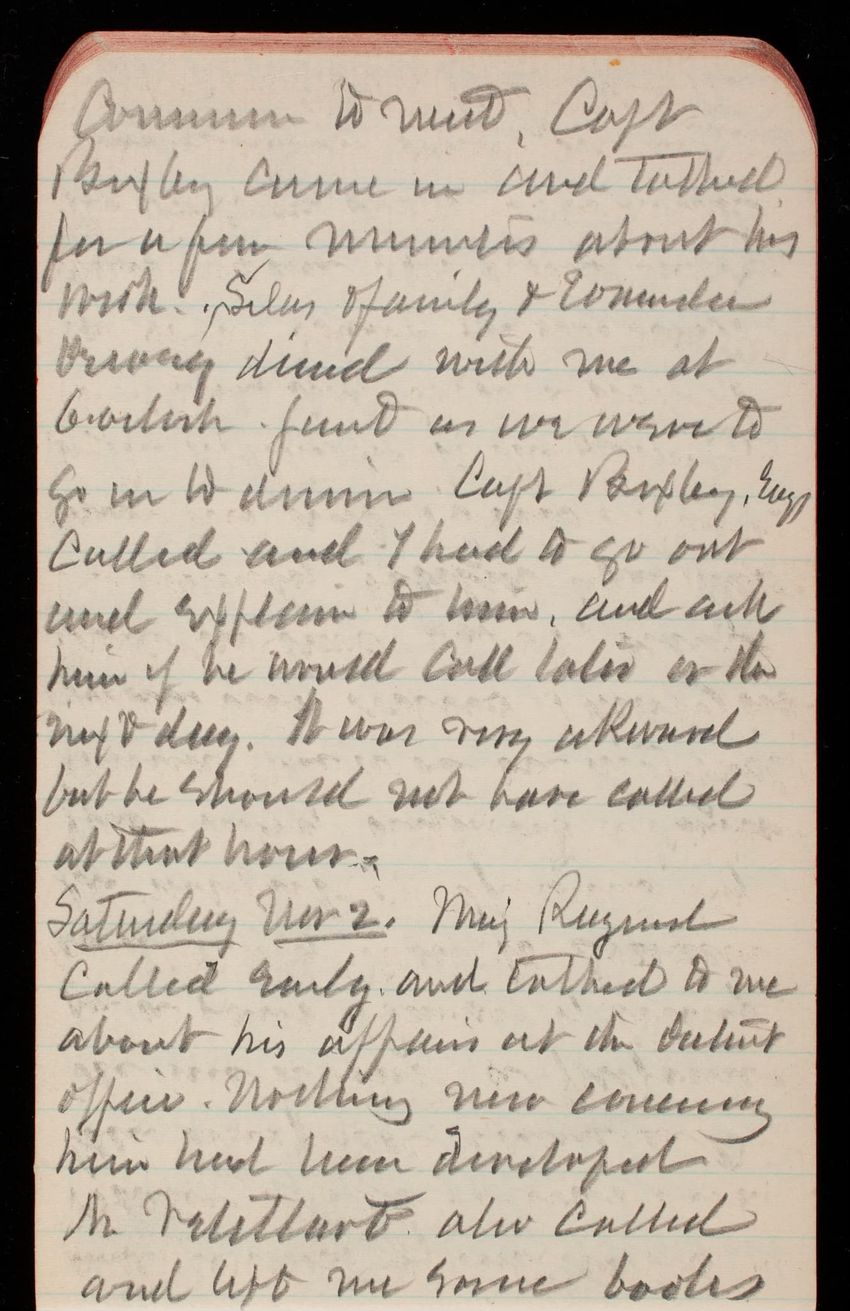 Common to meet, Capt
Bixby came in and talked
for a few minutes about his
work. Silas & family &
dined with me at
6 oclock. Just as we were to
go in to dinner Capt Bixby, Eng
called and I had to go out
and explain to him, and ask
him if he would call later or the
next day. It was very akward
but he should not have called
at that hour.
Saturday Nov 2. Maj Raymond
called early and talked to me
about his affairs at the Patent
office. Nothing new concerning
him had been developed
Mr also called
and left me some books